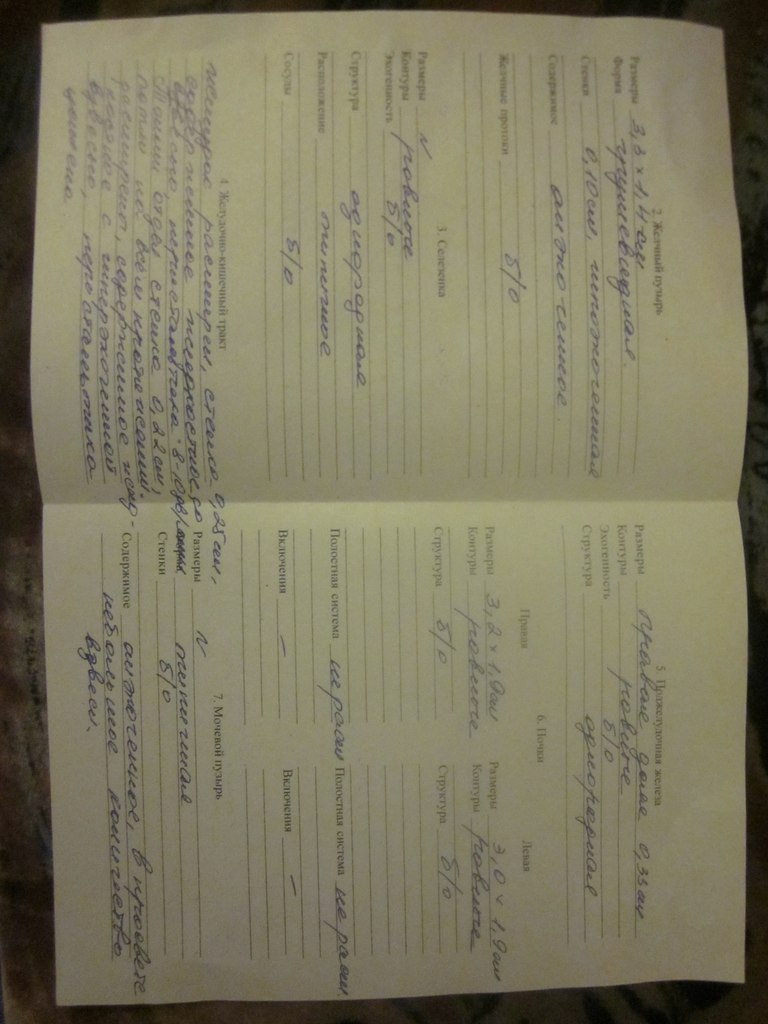 2. Желчный пузырь
Размеры 3,3 × 1,4 см
Форма грушевидная
Стенки 0,10 см, гипоэхогенная
Содержимое анэхогенное
Желчные протоки б/о
3. Селезенка
Размеры N
Контуры ровные
Эхогенность б/о
Структура однородная
Расположение типичное
Сосуды б/о
4. Желудочно-кишечный тракт
желудок расширен, стенка 0,25 см,
содержимое жидкостное со
взвесью, перистальтика
Тонкий отдел стенка 0,22 см,
петли на всем протяжении
расширены, содержимое жид-
кое с гиперэхогенной
взвесью, перистальтика
5. Поджелудочная железа
Размеры правая доля 0,33 см
Контуры ровные
Эхогенность б/о
Структура однородная
6. Почки
Правая
Размеры 3,2 × 1,9 см
Контуры ровные
Структура б/о
Полостная система не расш
Включения –
Левая
Размеры 3,0 × 1,9 см
Контуры ровные
Структура б/о
Полостная система не расш.
Включения –
7. Мочевой пузырь
Размеры N типичная
Стенки б/о
Содержимое анэхогенное, в просвете
небольшое количество
взвеси.